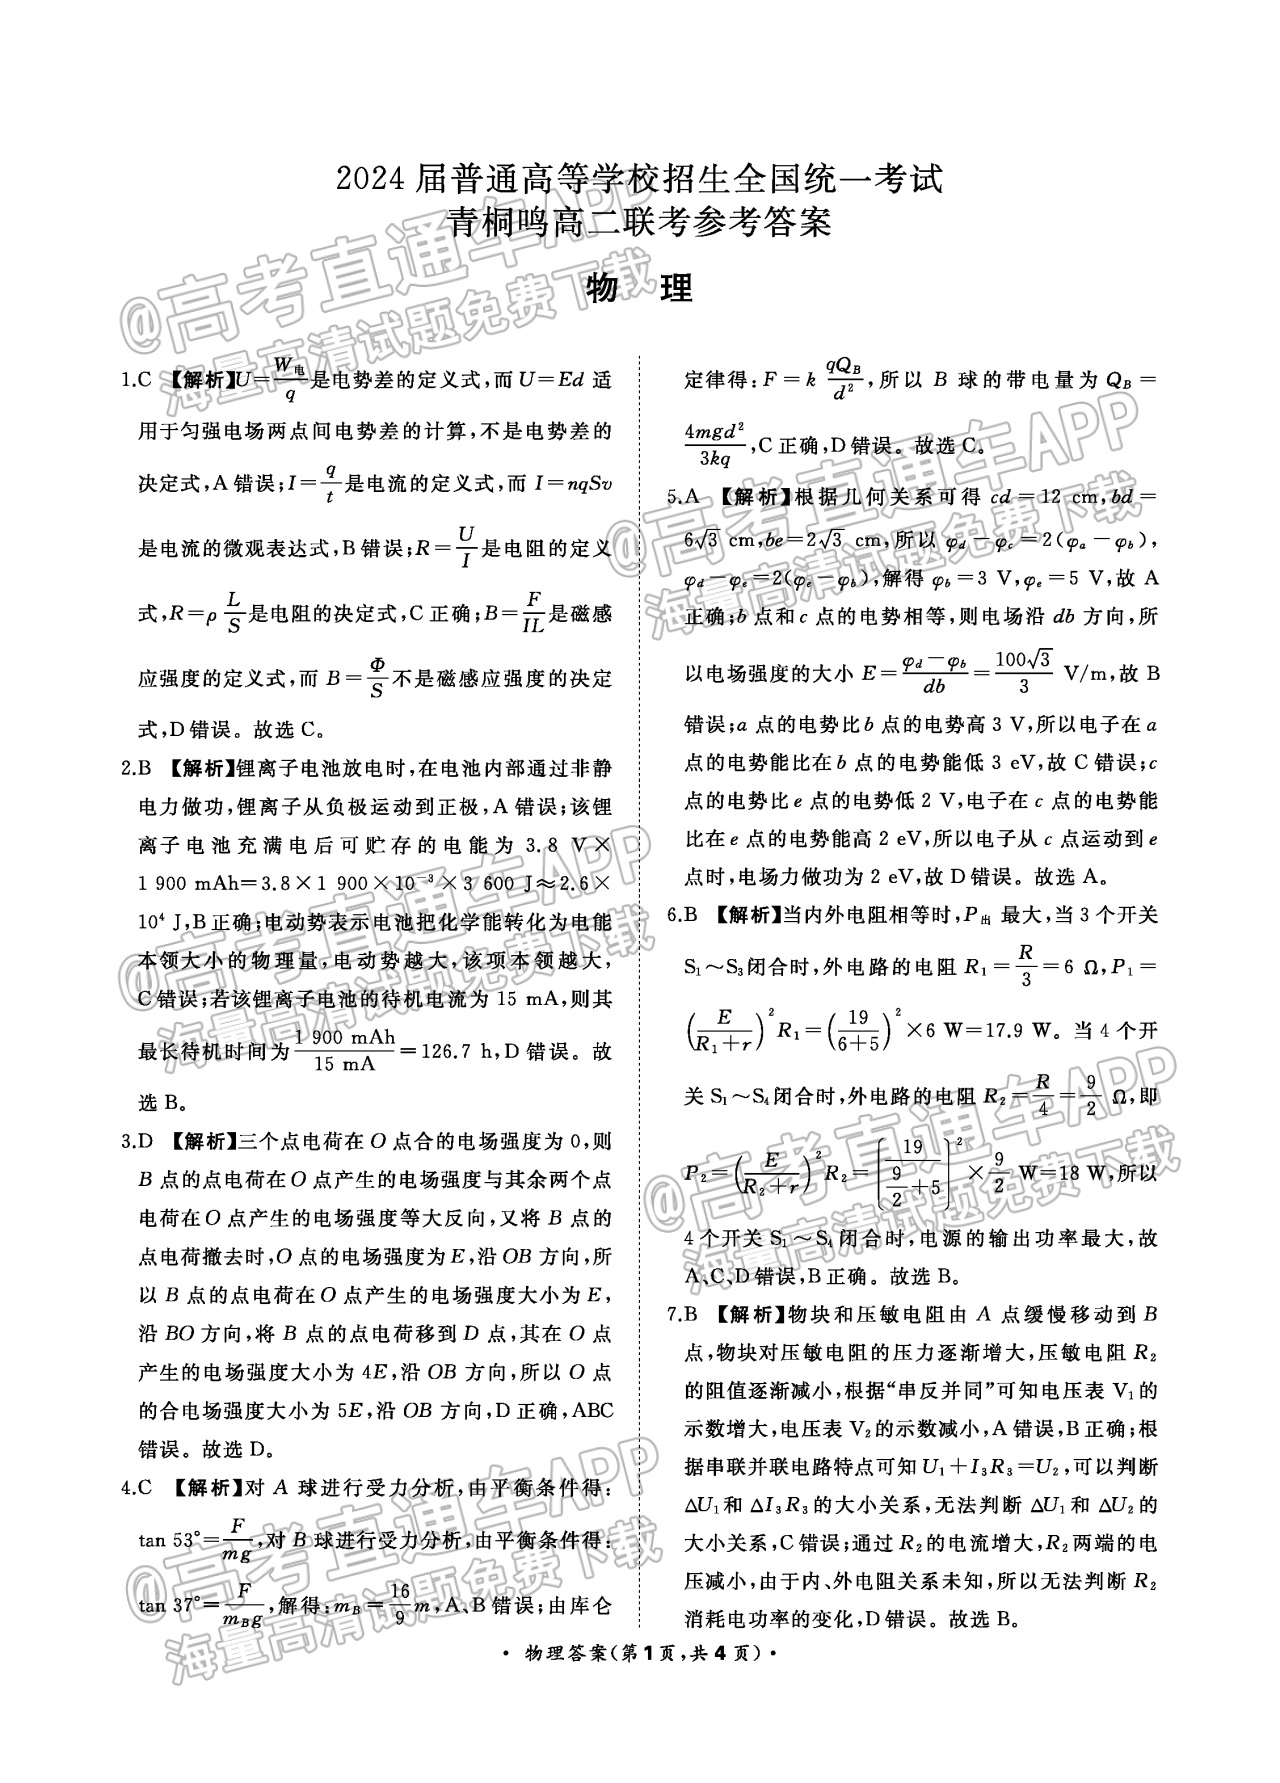 2024 届普通高等学校招生全国统一考试
青桐鸣高二联考参考答案
物 理
1.C 【解析】U=W电/q是电势差的定义式,而 U=Ed 适
用于匀强电场两点间电势差的计算,不是电势差的
决定式,A 错误;I=q/t是电流的定义式,而 I=nqSv
是电流的微观表达式,B 错误;R=U/I是电阻的定义
式,R=ρL/S是电阻的决定式,C 正确;B=F/IL是磁感
应强度的定义式,而 B=Φ/S不是磁感应强度的决定
式,D 错误。故选 C。
2.B 【解析】锂离子电池放电时,在电池内部通过非静
电力做功,锂离子从负极运动到正极,A 错误;该锂
离子电池充满电后可贮存的电能为 3.8 V×
1 900 mAh=3.8×1 900×10⁻³×3 600 J≈2.6×
10⁴ J,B 正确;电动势表示电池把化学能转化为电能
本领大小的物理量,电动势越大,该项本领越大,
C 错误;若该锂离子电池的待机电流为 15 mA,则其
最长待机时间为1 900 mAh/15 mA=126.7 h,D 错误。故
选 B。
3.D 【解析】三个点电荷在 O 点合的电场强度为 0,则
B 点的点电荷在 O 点产生的电场强度与其余两个点
电荷在 O 点产生的电场强度等大反向,又将 B 点的
点电荷撤去时,O 点的电场强度为 E,沿 OB 方向,所
以 B 点的点电荷在 O 点产生的电场强度大小为 E,
沿 BO 方向,将 B 点的点电荷移到 D 点,其在 O 点
产生的电场强度大小为 4E,沿 OB 方向,所以 O 点
的合电场强度大小为 5E,沿 OB 方向,D 正确,ABC
错误。故选 D。
4.C 【解析】对 A 球进行受力分析,由平衡条件得:
tan 53°=F/mg,对 B 球进行受力分析,由平衡条件得:
tan 37°=F/m_Bg,解得:m_B=16/9m,A、B 错误;由库仑
定律得:F=k qQ_B/d²,所以 B 球的带电量为 Q_B=
4mgd²/3kq,C 正确,D 错误。故选 C。
5.A 【解析】根据几何关系可得 cd=12 cm,bd=
6√3 cm,be=2√3 cm,所以 φ_d-φ_c=2(φ_a-φ_b),
φ_d-φ_e=2(φ_e-φ_b),解得 φ_b=3 V,φ_e=5 V,故 A
正确;b 点和 c 点的电势相等,则电场沿 db 方向,所
以电场强度的大小 E=(φ_d-φ_b)/db=100√3/3 V/m,故 B
错误;a 点的电势比 b 点的电势高 3 V,所以电子在 a
点的电势能比在 b 点的电势能低 3 eV,故 C 错误;c
点的电势比 e 点的电势低 2 V,电子在 c 点的电势能
比在 e 点的电势能高 2 eV,所以电子从 c 点运动到 e
点时,电场力做功为 2 eV,故 D 错误。故选 A。
6.B 【解析】当内外电阻相等时,P出 最大,当 3 个开关
S₁~S₃闭合时,外电路的电阻 R₁=R/3=6 Ω,P₁=
(E/(R₁+r))²R₁=(19/(6+5))²×6 W=17.9 W。当 4 个开
关 S₁~S₄闭合时,外电路的电阻 R₂=R/4=9/2 Ω,即
P₂=(E/(R₂+r))²R₂=[19/(9/2+5)]²×9/2 W=18 W,所以
4 个开关 S₁~S₄闭合时,电源的输出功率最大,故
A、C、D 错误,B 正确。故选 B。
7.B 【解析】物块和压敏电阻由 A 点缓慢移动到 B
点,物块对压敏电阻的压力逐渐增大,压敏电阻 R₂
的阻值逐渐减小,根据“串反并同”可知电压表 V₁的
示数增大,电压表 V₂的示数减小,A 错误,B 正确;根
据串联并联电路特点可知 U₁+I₃R₃=U₂,可以判断
ΔU₁和 ΔI₃R₃的大小关系,无法判断 ΔU₁和 ΔU₂的
大小关系,C 错误;通过 R₂的电流增大,R₂两端的电
压减小,由于内、外电阻关系未知,所以无法判断 R₂
消耗电功率的变化,D 错误。故选 B。
· 物理答案(第 1 页,共 4 页) ·
@高考直通车APP
海量高清试题免费下载
@高考直通车APP
海量高清试题免费下载
@高考直通车APP
海量高清试题免费下载
@高考直通车APP
海量高清试题免费下载
@高考直通车APP
海量高清试题免费下载